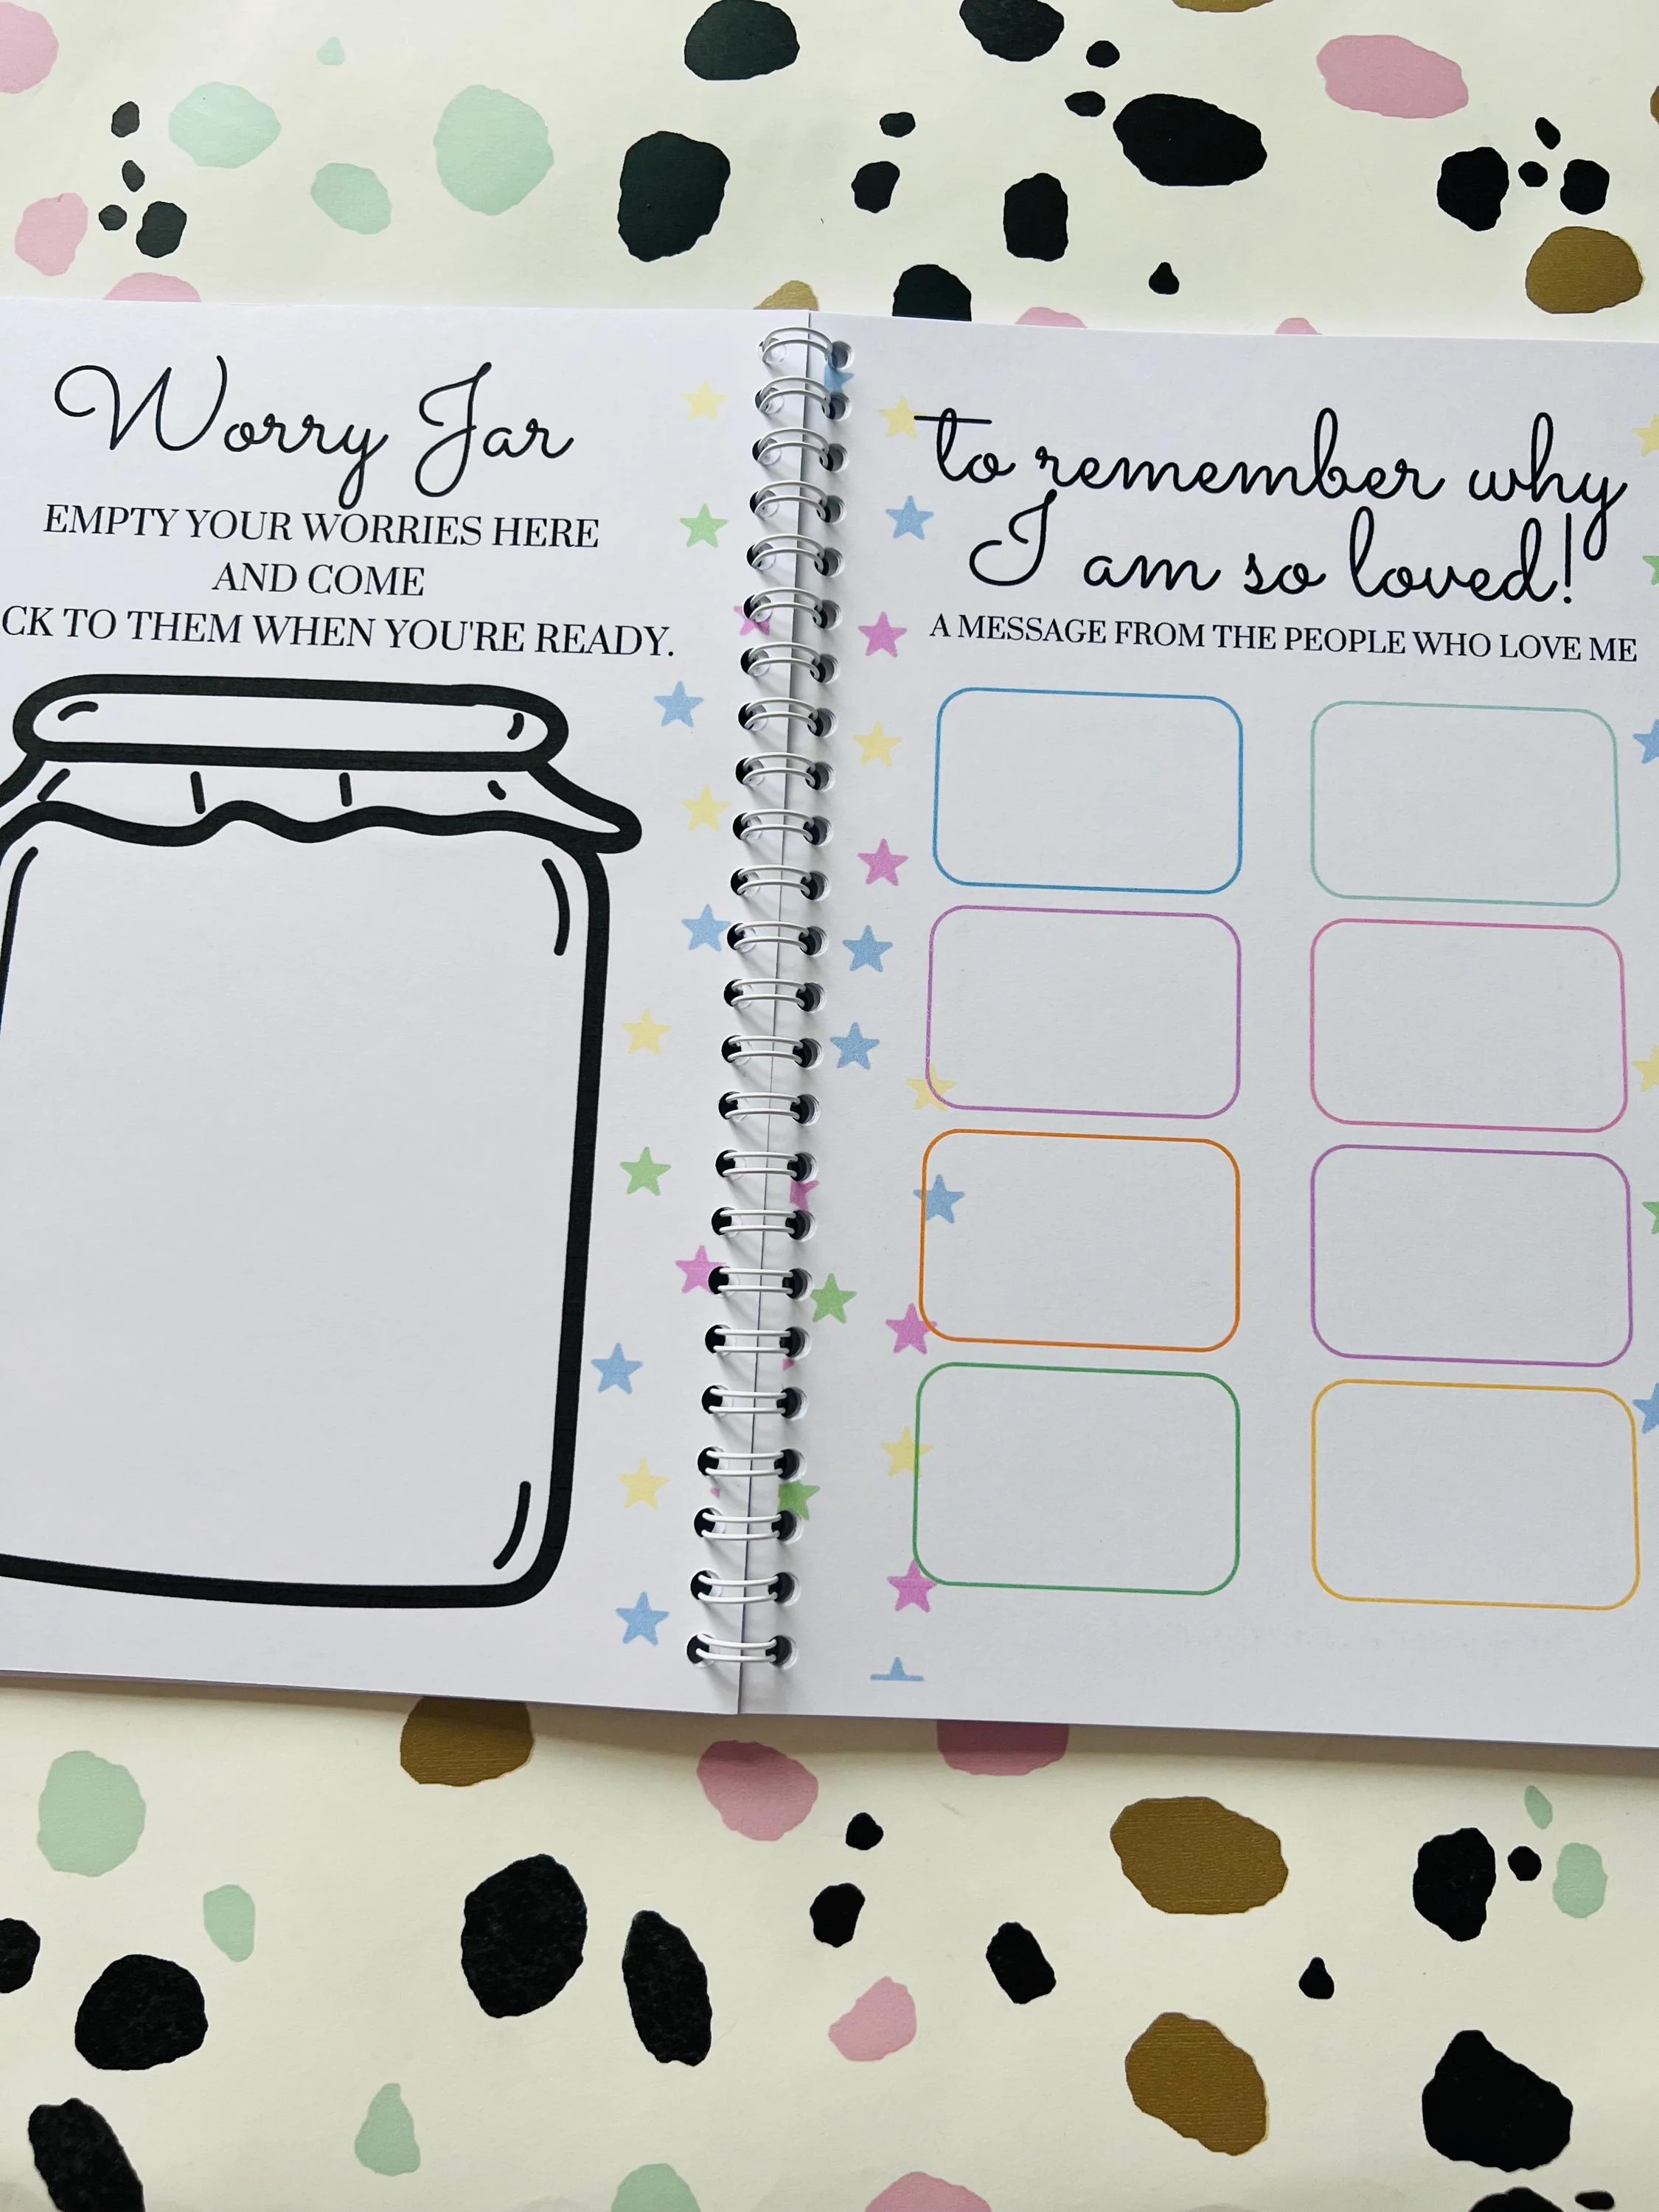 Worry Jar
EMPTY YOUR WORRIES HERE
AND COME
CK TO THEM WHEN YOU'RE READY.
to remember why
I am so loved!
A MESSAGE FROM THE PEOPLE WHO LOVE ME